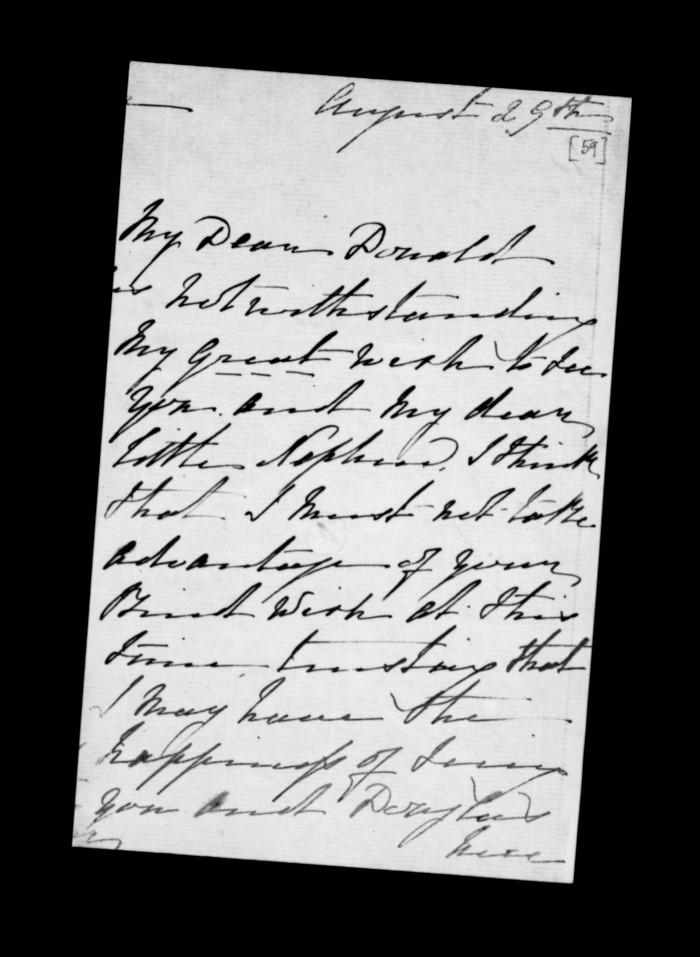 August 29th
[59]
My Dear Donald
notwithstanding
My great wish to see
you and My dear
little Nephew, I think
that I must not take
advantage of your
Kind Wish at this
time trusting that
I May have the
happiness of seeing
you and Douglas
here